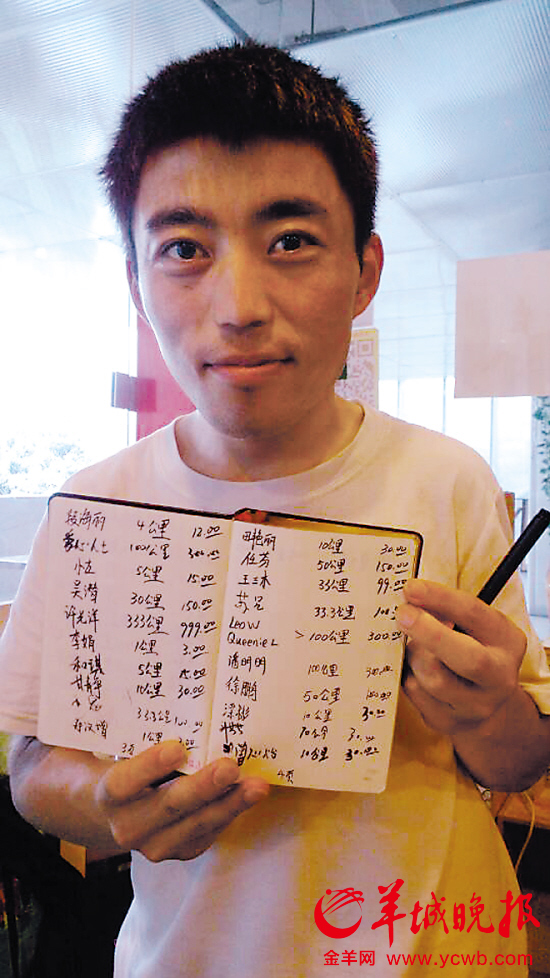 段海丽 4公里 12.00
爱心人士 100公里 300.00
小左 5公里 15.00
吴潜 30公里 150.00
许光洋 333公里 999.00
李娟 1公里 3.00
5公里 15.00
甘静 10公里 30.00
33.3公里 100.00
1公里 3.00
3页
田艳丽 10公里 30.00
任芳 50公里 150.00
王三木 33公里 99.00
苏兄 33.3公里 100
Leo W
Queenie L > 100公里 300.00
潘明明 100公里 300.00
徐鹏 50公里
梁 10公里 30.00
10公里 30.00
10公里 30.00
4页
羊城晚报
金羊网 www.ycwb.com